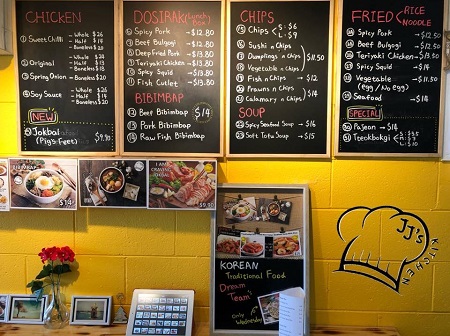 CHICKEN
1 Sweet Chilli - Whole $26
- Half $14
- Boneless $20
2 Original - Whole $26
- Half $14
3 Spring Onion - Boneless $20
4 Soy Sauce - Whole $26
- Half $14
- Boneless $20
NEW
Jokbal
(Pig's Feet) $9.90
DOSIRAK (Lunch Box)
Spicy Pork - $12.80
Beef Bulgogi - $12.80
Deep Fried Pork - $13.80
Teriyaki Chicken - $13.80
Spicy Squid - $13.80
Fish Cutlet - $13.80
BIBIMBAP
Beef Bibimbap
Pork Bibimbap
Raw Fish Bibimbap
$14
CHIPS
Chips - S. $6
- L. $9
Sushi n Chips
Dumplings n Chips
Vegetable n Chips
$11.50
Fish n Chips $12
Prawns n Chips
Calamary n Chips
$14.50
SOUP
Spicy Seafood Soup - $16
Soft Tofu Soup - $15
FRIED RICE NOODLE
Spicy Pork - $12.50
Beef Bulgogi - $12.50
Teriyaki Chicken - $13.50
Spicy Squid - $14
Vegetable - $11.50
(egg / No egg)
Seafood - $14
SPECIAL
Pajeon - $14
Tteokbokgi
BIBIMBAP
$14
I AM
CRAVING
$9.90
KOREAN
Traditional Food
Dream
Team
Only Wednesday
JJ's
KITCHEN